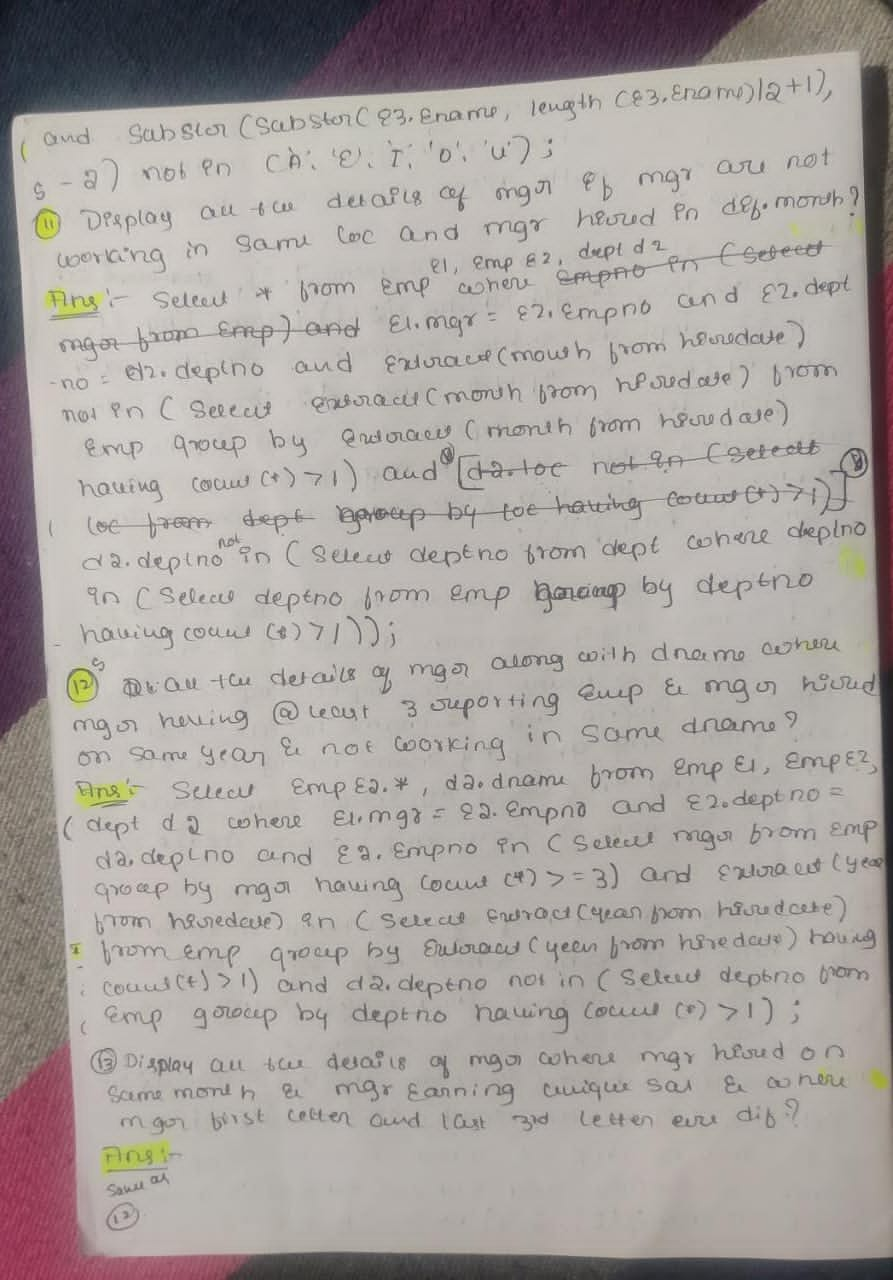 and Substr (Substr( E3. Ename, length (E3.Ename)/2+1),
-2) not in ('A', 'E', 'I', 'O', 'U') ;
(11) Display all the details of mgr if mgr are not
working in same loc and mgr hired in dif. month?
Ans:- Select * from Emp E1, Emp E2, dept d2 where Empno in (Select
mgr from Emp) and E1.mgr = E2.Empno and E2.dept
-no = d2.deptno and Extract(month from hiredate)
not in (Select Extract(month from hiredate) from
Emp group by Extract (month from hiredate)
having count (*) >1) and [d2.loc not in (Select
loc from dept group by loc having count (*) >1)]
d2.deptno not in (Select deptno from dept where deptno
in (Select deptno from emp group by deptno
having count (*) >1));
(12) all the details of mgr along with dname where
mgr having @least 3 reporting Emp & mgr hired
on same year & not working in same dname?
Ans:- Select Emp E2.*, d2.dname from Emp E1, Emp E2,
dept d2 where E1.mgr = E2.Empno and E2.deptno =
d2.deptno and E2.Empno in (Select mgr from Emp
group by mgr having count (*) >=3) and Extract (year
from hiredate) in (Select Extract(year from hiredate)
from emp group by Extract (year from hiredate) having
count(*) >1) and d2.deptno not in (Select deptno from
Emp group by deptno having count (*) >1) ;
(13) Display all the details of mgr where mgr hired on
Same month & mgr Earning unique sal & where
mgr first letter and last 3rd letter are dif?
Ans:-
Same as
(12)